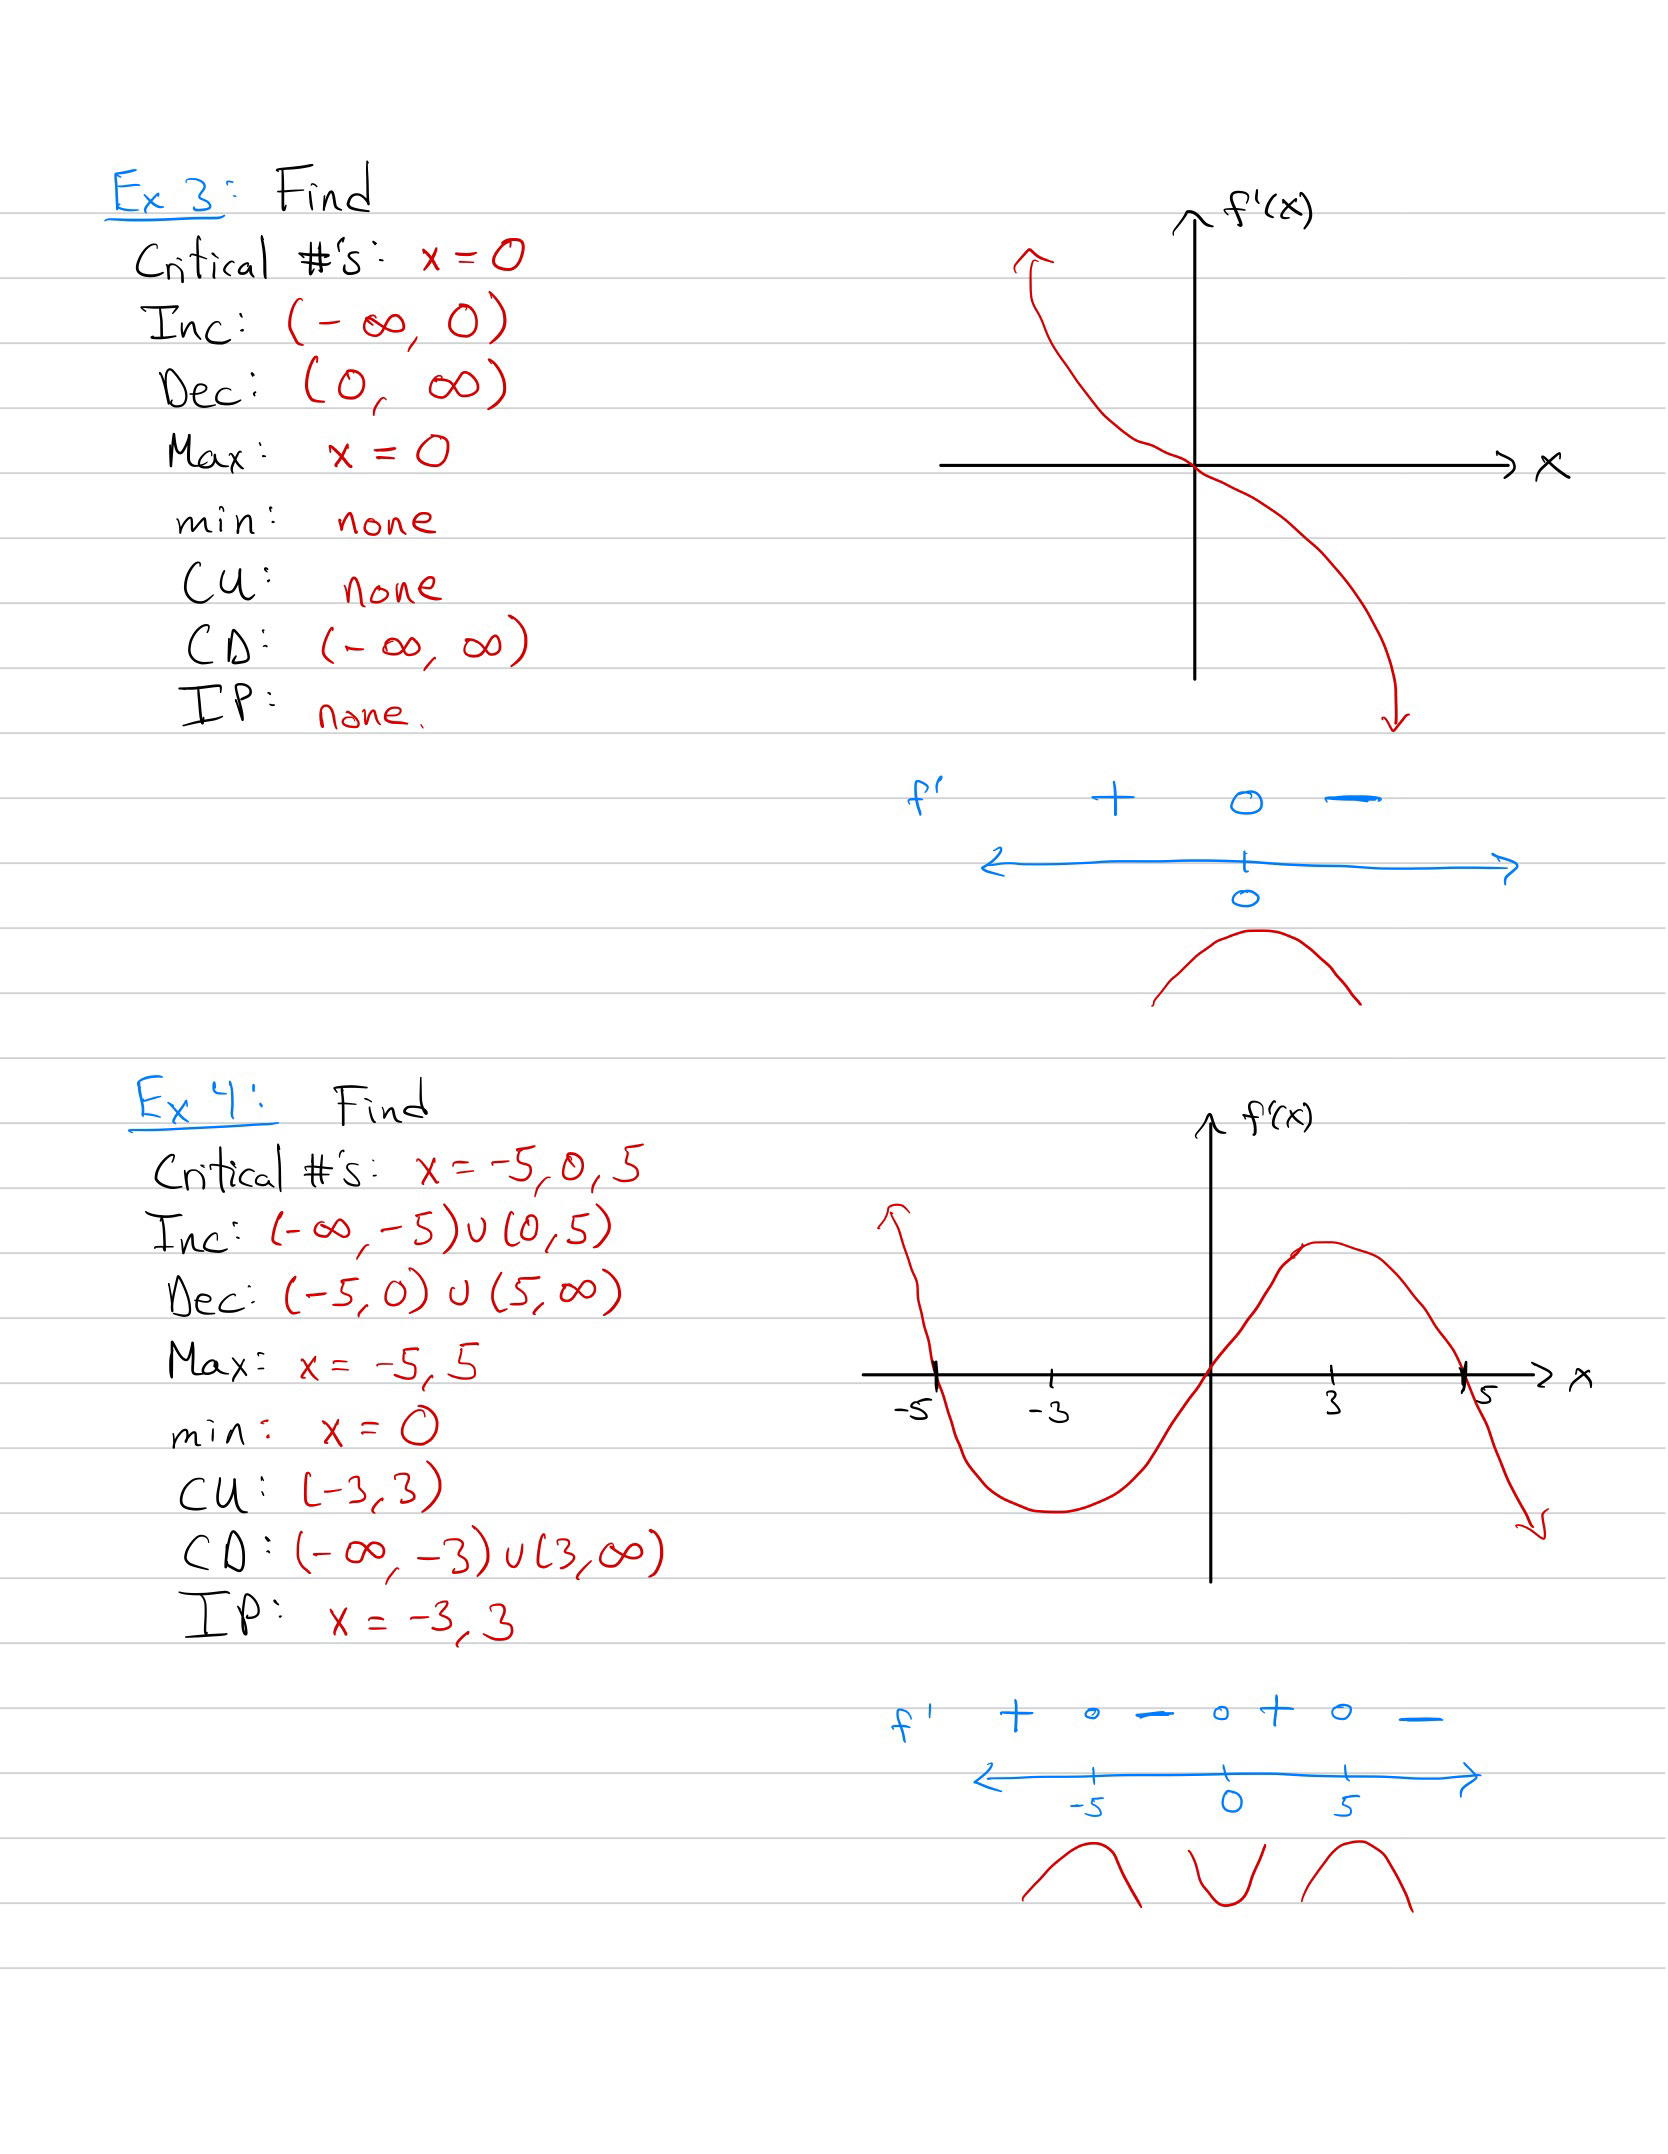 Ex 3: Find
Critical #'s: x = 0
Inc: (-∞, 0)
Dec: (0, ∞)
Max: x = 0
min: none
CU: none
CD: (-∞, ∞)
IP: none.
f'(x)
x
f' + 0 −
0
Ex 4: Find
Critical #'s: x = -5, 0, 5
Inc: (-∞, -5) ∪ (0, 5)
Dec: (-5, 0) ∪ (5, ∞)
Max: x = -5, 5
min: x = 0
CU: (-3, 3)
CD: (-∞, -3) ∪ (3, ∞)
IP: x = -3, 3
f'(x)
x
-5 -3 3 5
f' + 0 − 0 + 0 −
-5 0 5